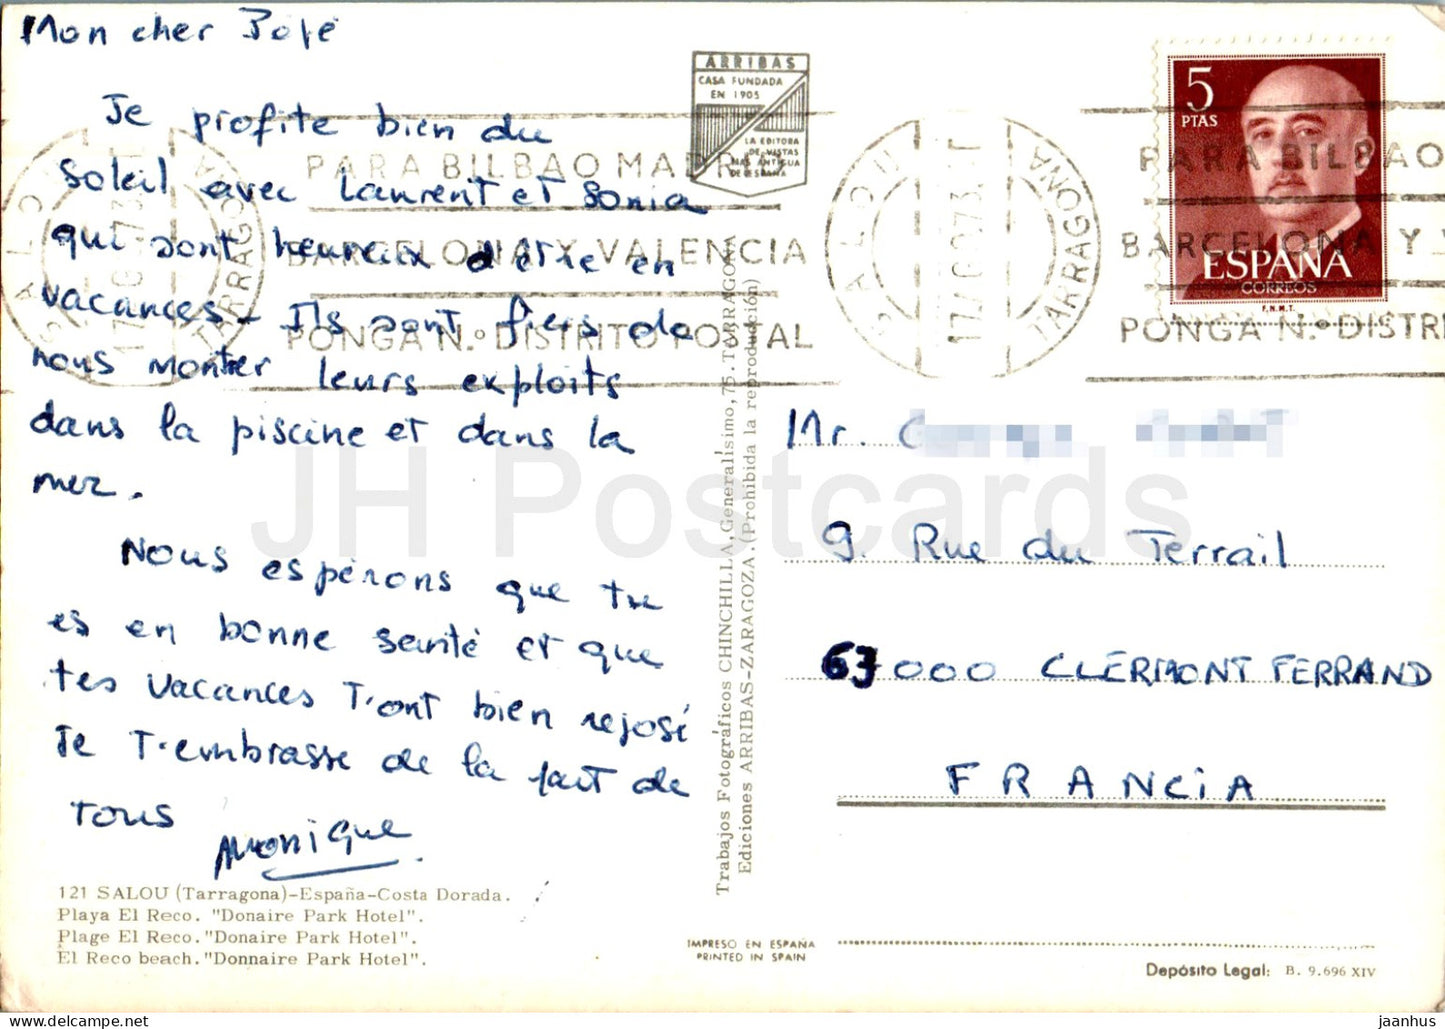 Mon cher
Je profite bien du
soleil avec Laurent et Sonia
qui sont heureux d'être en
vacances - Ils sont fiers de
nous montrer leurs exploits
dans la piscine et dans la
mer.
Nous espérons que tu
es en bonne santé et que
tes vacances t'ont bien reposé
Je t'embrasse de la part de
tous
Monique
121 SALOU (Tarragona)-España-Costa Dorada.
Playa El Reco. "Donaire Park Hotel".
Plage El Reco. "Donaire Park Hotel".
El Reco beach. "Donnaire Park Hotel".
ARRIBAS
CASA FUNDADA
EN 1905
LA EDITORA
DE VISTAS
MAS ANTIGUA
DE ESPAÑA
SALOU
TARRAGONA
PARA BILBAO MADRID
BARCELONA Y VALENCIA
PONGA N.º DISTRITO POSTAL
SALOU
17 73
TARRAGONA
PARA BILBAO
BARCELONA Y
PONGA N.º DISTRI
5
PTAS
ESPAÑA
CORREOS
F.N.M.T.
Trabajos Fotográficos CHINCHILLA, Generalísimo, 75. TARRAGONA
Ediciones ARRIBAS-ZARAGOZA. (Prohibida la reproducción)
Mr.
9. Rue du Terrail
63000 CLERMONT FERRAND
FRANCiA
IMPRESO EN ESPAÑA
PRINTED IN SPAIN
Depósito Legal: B. 9.696 XIV
JH Postcards
https://jhpostcards.com
jaanhus